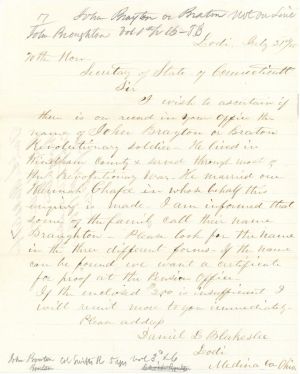 John Brayton or Braton Not on List
John Braughton Vol 1st p 16-5B
Lodi, July 21st
To the Hon
Secretary of State of Connecticutt
Sir
I wish to ascertain if
there is on record in your Office the
name of John Brayton or Braton
Revolutionary soldier - He lived in
Windham County & served through most of
the Revolutionary War. He married one
Hannah Chafee in whose behalf this
enquiry is made. I am informed that
some of the family call their name
Braughton - Please look for the name
in the three different forms. If the name
can be found we want a certificate
for proof at the Pension Office.
If the enclosed $2.00 is insufficient I
will remit more to you immediately.
Please address
Daniel D Blakeslee
Lodi
Medina Co Ohio
John Bruton Col 5 Vol